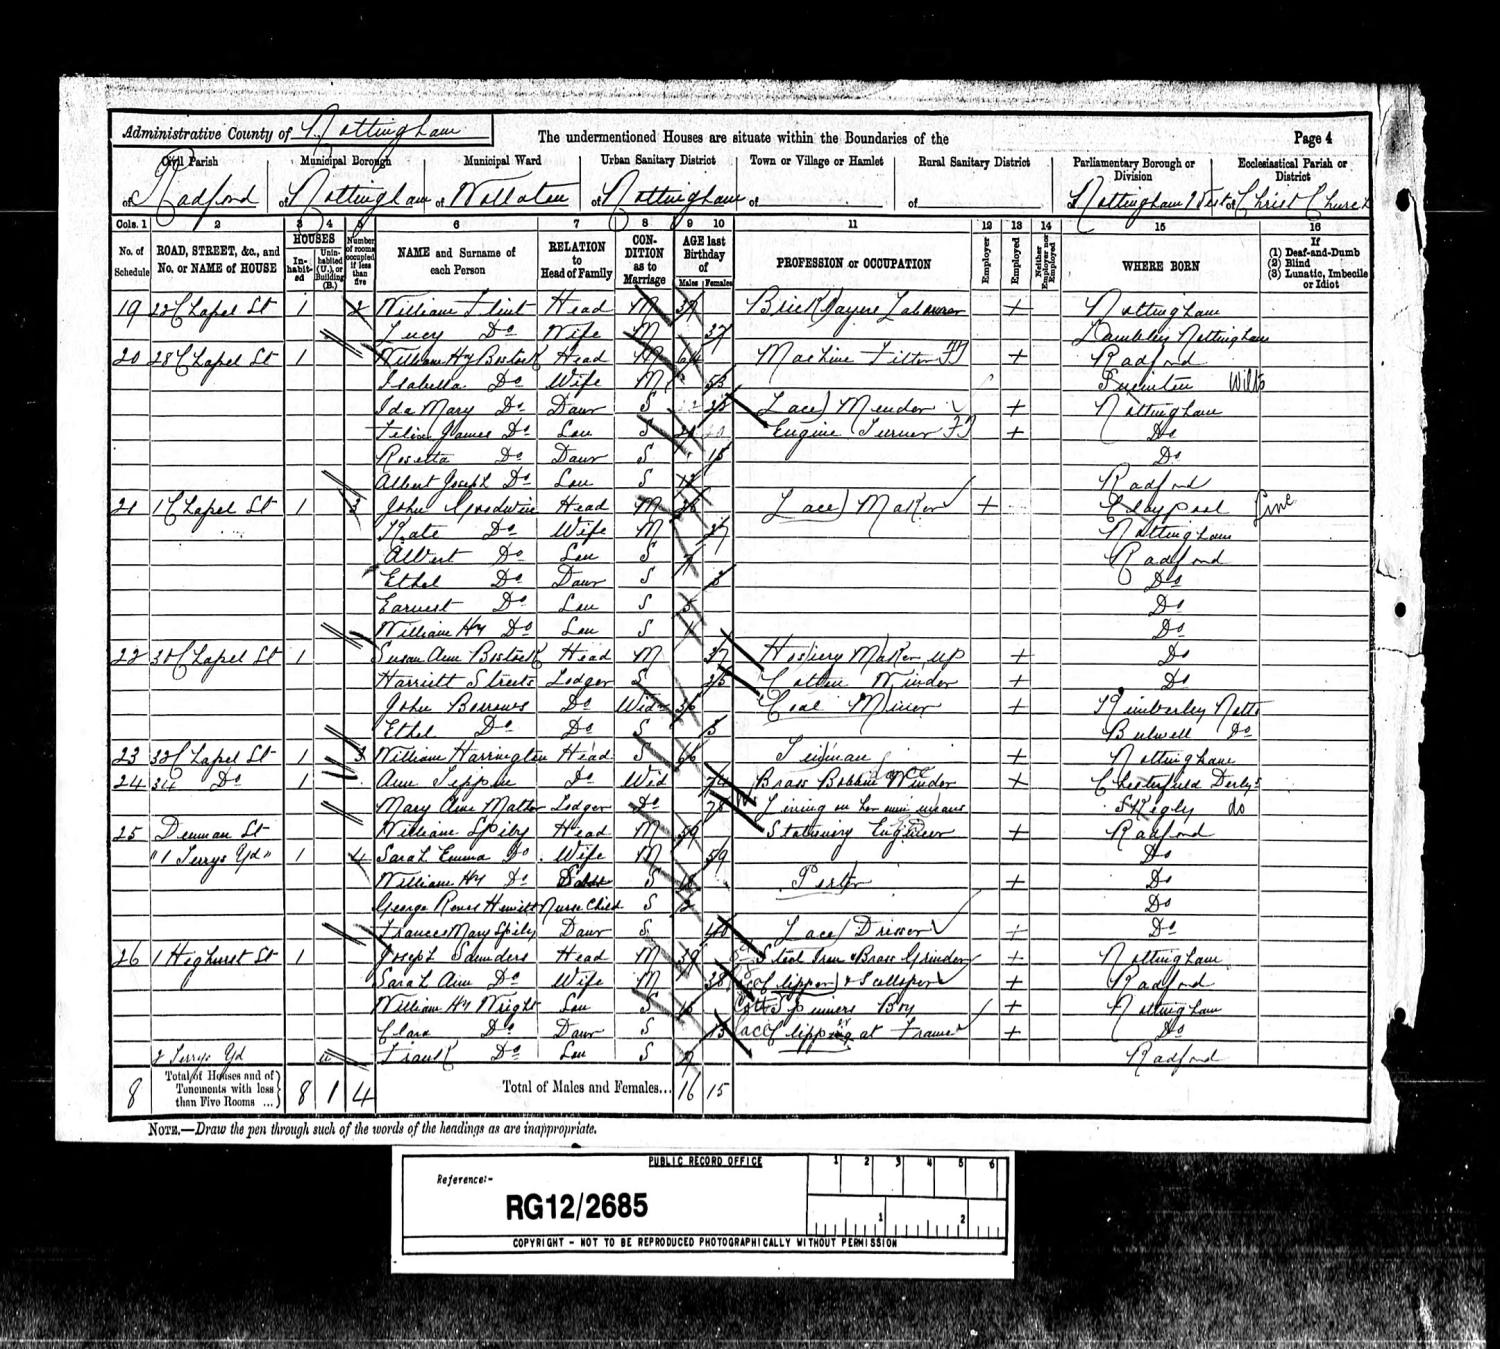 Administrative County of Nottingham
The undermentioned Houses are situate within the Boundaries of the
Page 4
Civil Parish Municipal Borough Municipal Ward Urban Sanitary District Town or Village or Hamlet Rural Sanitary District Parliamentary Borough or Division Ecclesiastical Parish or District
of Radford of Nottingham of Wollaton of Nottingham of of of Nottingham West of Christ Church
Cols. 1 2 3 4 5 6 7 8 9 10 11 12 13 14 15 16
No. of Schedule ROAD, STREET, &c., and No. or NAME of HOUSE HOUSES Inhabited Uninhabited (U.), or Building (B.) Number of rooms occupied if less than five NAME and Surname of each Person RELATION to Head of Family CONDITION as to Marriage AGE last Birthday of Males Females PROFESSION or OCCUPATION Employer Employed Neither Employer nor Employed WHERE BORN If (1) Deaf-and-Dumb (2) Blind (3) Lunatic, Imbecile or Idiot
19 22 Chapel St 1 2 William Flint Head M 39 Bricklayers Labourer + Nottingham
Lucy Do Wife M 37 Lambley Nottingham
20 28 Chapel St 1 William Hy Bostock Head M Machine Fitter + Radford
Isabella Do Wife M 53 Swindon Wilts
Ida Mary Do Daur S 23 Lace Mender + Nottingham
Felix James Do Son S Engine Turner + Do
Rosetta Do Daur S 15 Do
Albert Joseph Do Son S 12 Radford
21 1 Chapel St 1 3 John Goodwin Head M Lace Maker + Claypool Linc
Kate Do Wife M 27 Nottingham
Albert Do Son S Radford
Ethel Do Daur S Do
Earnest Do Son S Do
William Hy Do Son S Do
22 30 Chapel St 1 Susan Ann Bostock Head M 37 Hosiery Maker up + Do
Harriett Streets Lodger S 25 Cotton Winder + Do
John Borrows Do Widr 36 Coal Miner + Kimberley Notts
Ethel Do Do S Bulwell Do
23 32 Chapel St 1 3 William Harrington Head S 66 + Nottingham
24 34 Do 1 Ann Do Wid 74 Brass Bobbin Winder Lace + Chesterfield Derbys
Mary Ann Lodger Do Living on her own means do
25 Denman St William Spiby Head M 59 Stationery Engineer + Radford
"1 Terrys Yd" 1 4 Sarah Emma Do Wife M 59 Do
William Hy Do S 18 Porter + Do
George Hewitt Nurse Child S Do
Frances Mary Spiby Daur S Lace Dresser + Do
26 1 Highurst St 1 Joseph Saunders Head M 39 Steel Iron Brass Grinder + Nottingham
Sarah Ann Do Wife M 38 Lace Clipper & Scalloper + Radford
William Hy Wright Son S Cott Spinners Boy + Nottingham
Clara Do Daur S Lace Clipping at Frame + Do
2 Terrys Yd Frank Do Son S Radford
8 Total of Houses and of Tenements with less than Five Rooms ... 8 1 4 Total of Males and Females... 16 15
NOTE.—Draw the pen through such of the words of the headings as are inappropriate.
PUBLIC RECORD OFFICE 1 2 3 4 5 6
Reference:-
RG12/2685
1 2
COPYRIGHT - NOT TO BE REPRODUCED PHOTOGRAPHICALLY WITHOUT PERMISSION